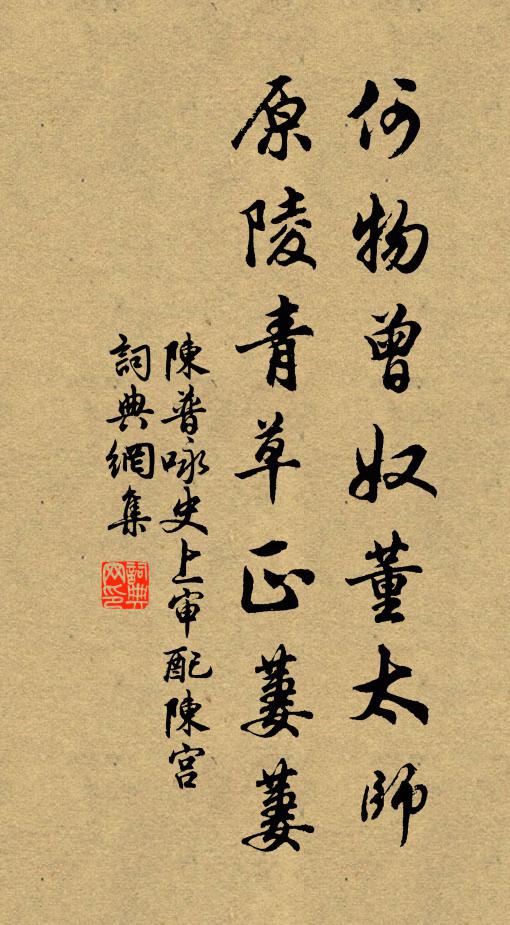 何物曾奴董太師
原陵青草正萋萋
陳普咏史上审配陳宮
詞典網集
詞典网印